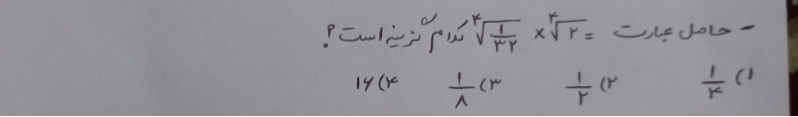 - حاصل عبارت = ∜۲ × ∜(۱/۳۲) کدام گزینه است؟
۱) ۱/۴  ۲) ۱/۲  ۳) ۱/۸  ۴) ۱۶